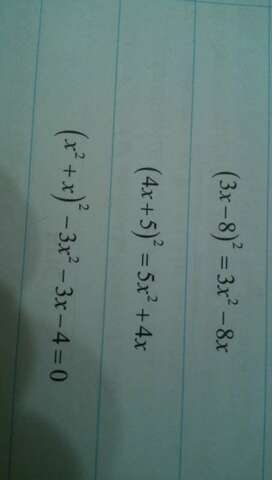 (3x−8)² = 3x² − 8x
(4x+5)² = 5x² + 4x
(x² + x)² − 3x² − 3x − 4 = 0